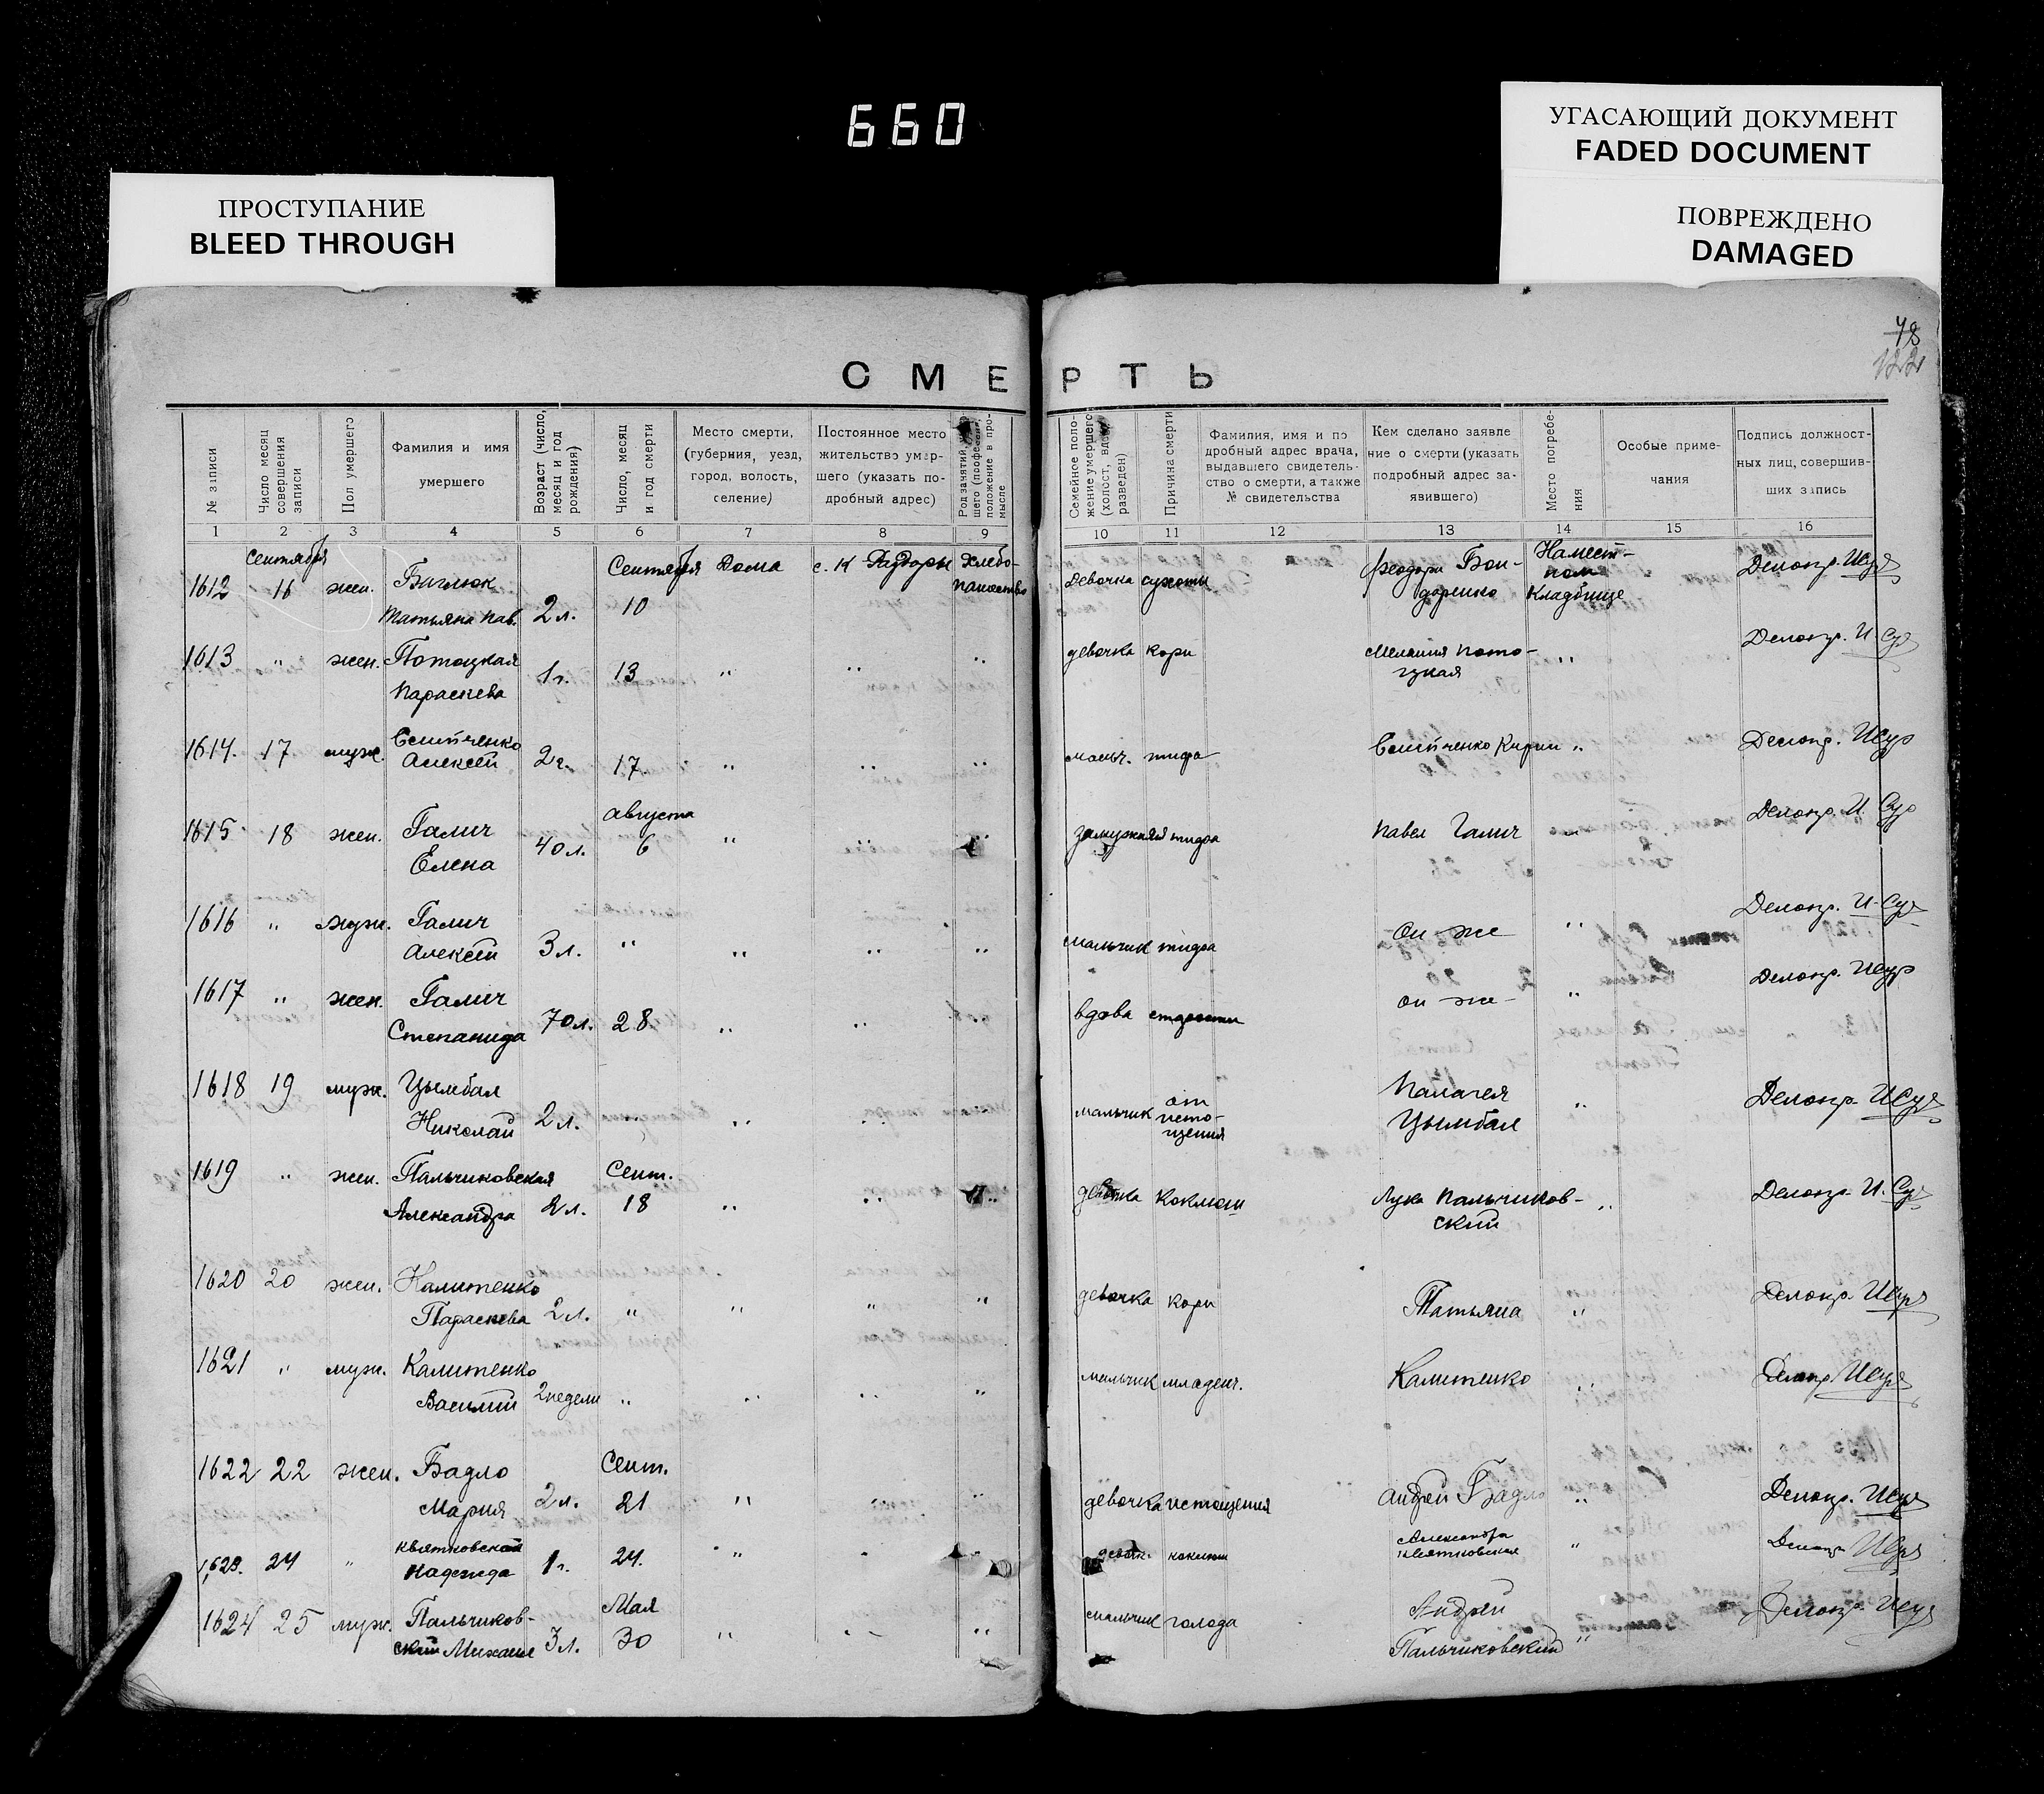 660
УГАСАЮЩИЙ ДОКУМЕНТ
FADED DOCUMENT
ПОВРЕЖДЕНО
DAMAGED
ПРОСТУПАНИЕ
BLEED THROUGH
78
122
СМЕРТЬ
№ записи
Число месяц совершения записи
Пол умершего
Фамилия и имя умершего
Возраст (число, месяц и год рождения)
Число, месяц и год смерти
Место смерти, (губерния, уезд, город, волость, селение)
Постоянное место жительство умершего (указать подробный адрес)
Род занятий, умершего (профессия, положение в промысле
Семейное положение умершего (холост, вдов, разведен)
Причина смерти
Фамилия, имя и подробный адрес врача, выдавшего свидетельство о смерти, а также № свидетельства
Кем сделано заявление о смерти (указать подробный адрес заявившего)
Место погребения
Особые примечания
Подпись должностных лиц, совершивших запись
1 2 3 4 5 6 7 8 9 10 11 12 13 14 15 16
сентября Сентября Дома с. К Хлебо- Феодора Бон- На мест-
1612 16 жен. Баглюк пашество девочка сухоти даренко ном Делопр.
Татьяна Пав. 2 л. 10 кладбище
1613 " жен. Потоцкая 1 г. 13 " " " девочка кори Мелания Пото- " Делопр.
Параскева цкая
1614. 17 муж. Алексей 2 г. 17 " " " мальч. тифа " Делопр.
августа
1615 18 жен. Галич 40 л. 6 " " " замужняя тифа Павел Галич " Делопр.
Елена
1616 " муж. Галич 3 л. " " " " мальчик тифа он же " Делопр.
Алексей
1617 " жен. Галич 70 л. 28 " " " вдова старости он же " Делопр.
Степанида
1618 19 муж. Цымбал 2 л. " " " " мальчик от исто- Палагея " Делопр.
Николай щения Цымбал
1619 " жен. Пальчиковская Сент. девочка коклюш Лука Пальчиков- " Делопр.
Александра 2 л. 18 " " " ский
1620 20 жен. Калитенко девочка кори Татьяна " Делопр.
Параскева 2 л. " " " "
1621 " муж. Калитенко мальчик младенч. Калитенко " Делопр.
Василий 2 недели " " " "
1622 22 жен. Бадло Сент. девочка истощения Андрей Бадло " Делопр.
Мария 2 л. 21 " " "
1623. 24 " Квятковская 24. " " " коклюш Александра " Делопр.
Надежда 1 г. Квятковская
1624 25 муж. Пальчиков- Мая мальчик голода Андрей Делопр.
ский Михаил 3 л. 30 " " " Пальчиковский "